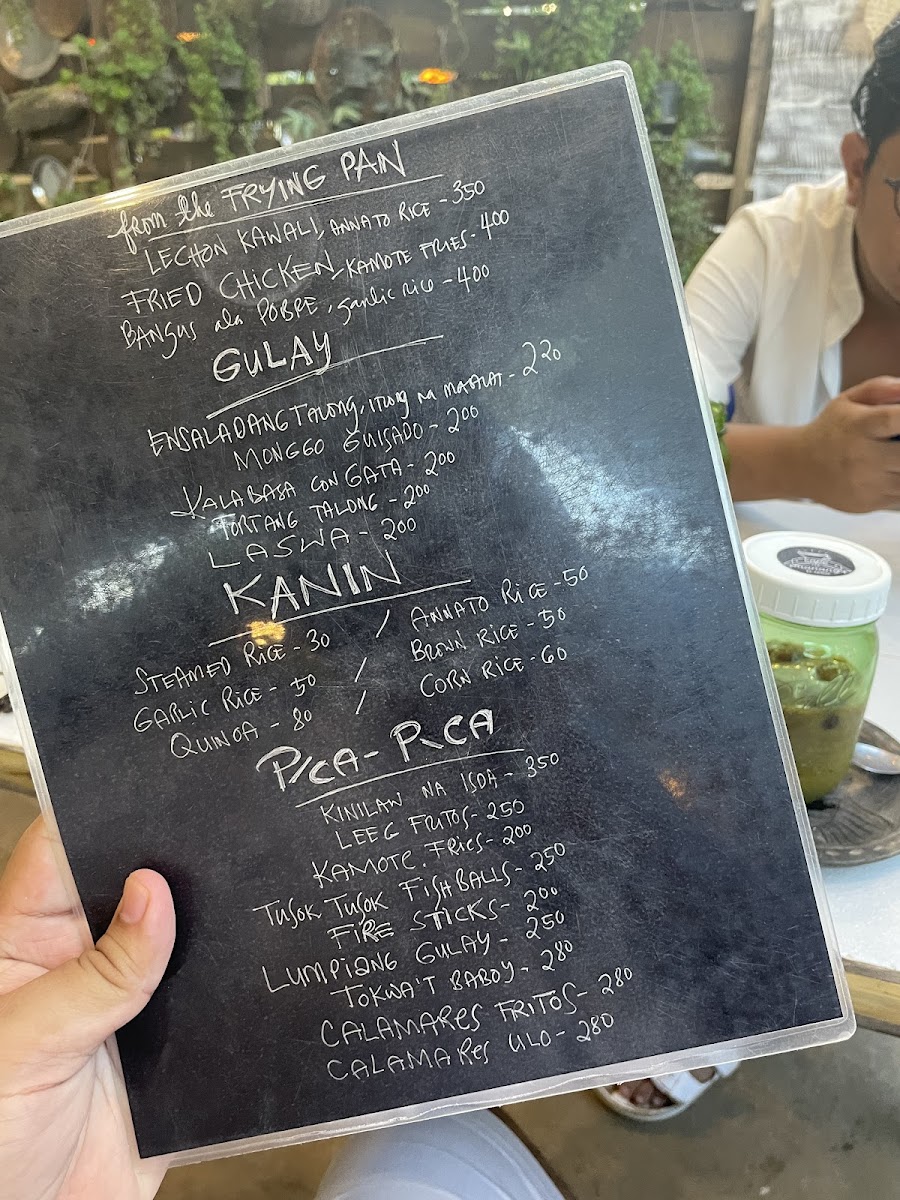 from the FRYING PAN
LECHON KAWALI, ANNATO RICE - 350
FRIED CHICKEN, KAMOTE FRIES - 400
BANGUS ala POBRE, garlic rice - 400
GULAY
ENSALADANG TALONG, ITLOG NA MAALAT - 220
MONGGO GUISADO - 200
KALABASA CON GATA - 200
TORTANG TALONG - 200
LASWA - 200
KANIN
STEAMED RICE - 30 / ANNATO RICE - 50
GARLIC RICE - 50 / BROWN RICE - 50
QUINOA - 80 / CORN RICE - 60
PICA-PICA
KINILAW NA ISDA - 350
LEEG FRITOS - 250
KAMOTE FRIES - 200
TUSOK TUSOK FISHBALLS - 250
FIRE STICKS - 200
LUMPIANG GULAY - 250
TOKWA'T BABOY - 280
CALAMARES FRITOS - 280
CALAMARES ULO - 280